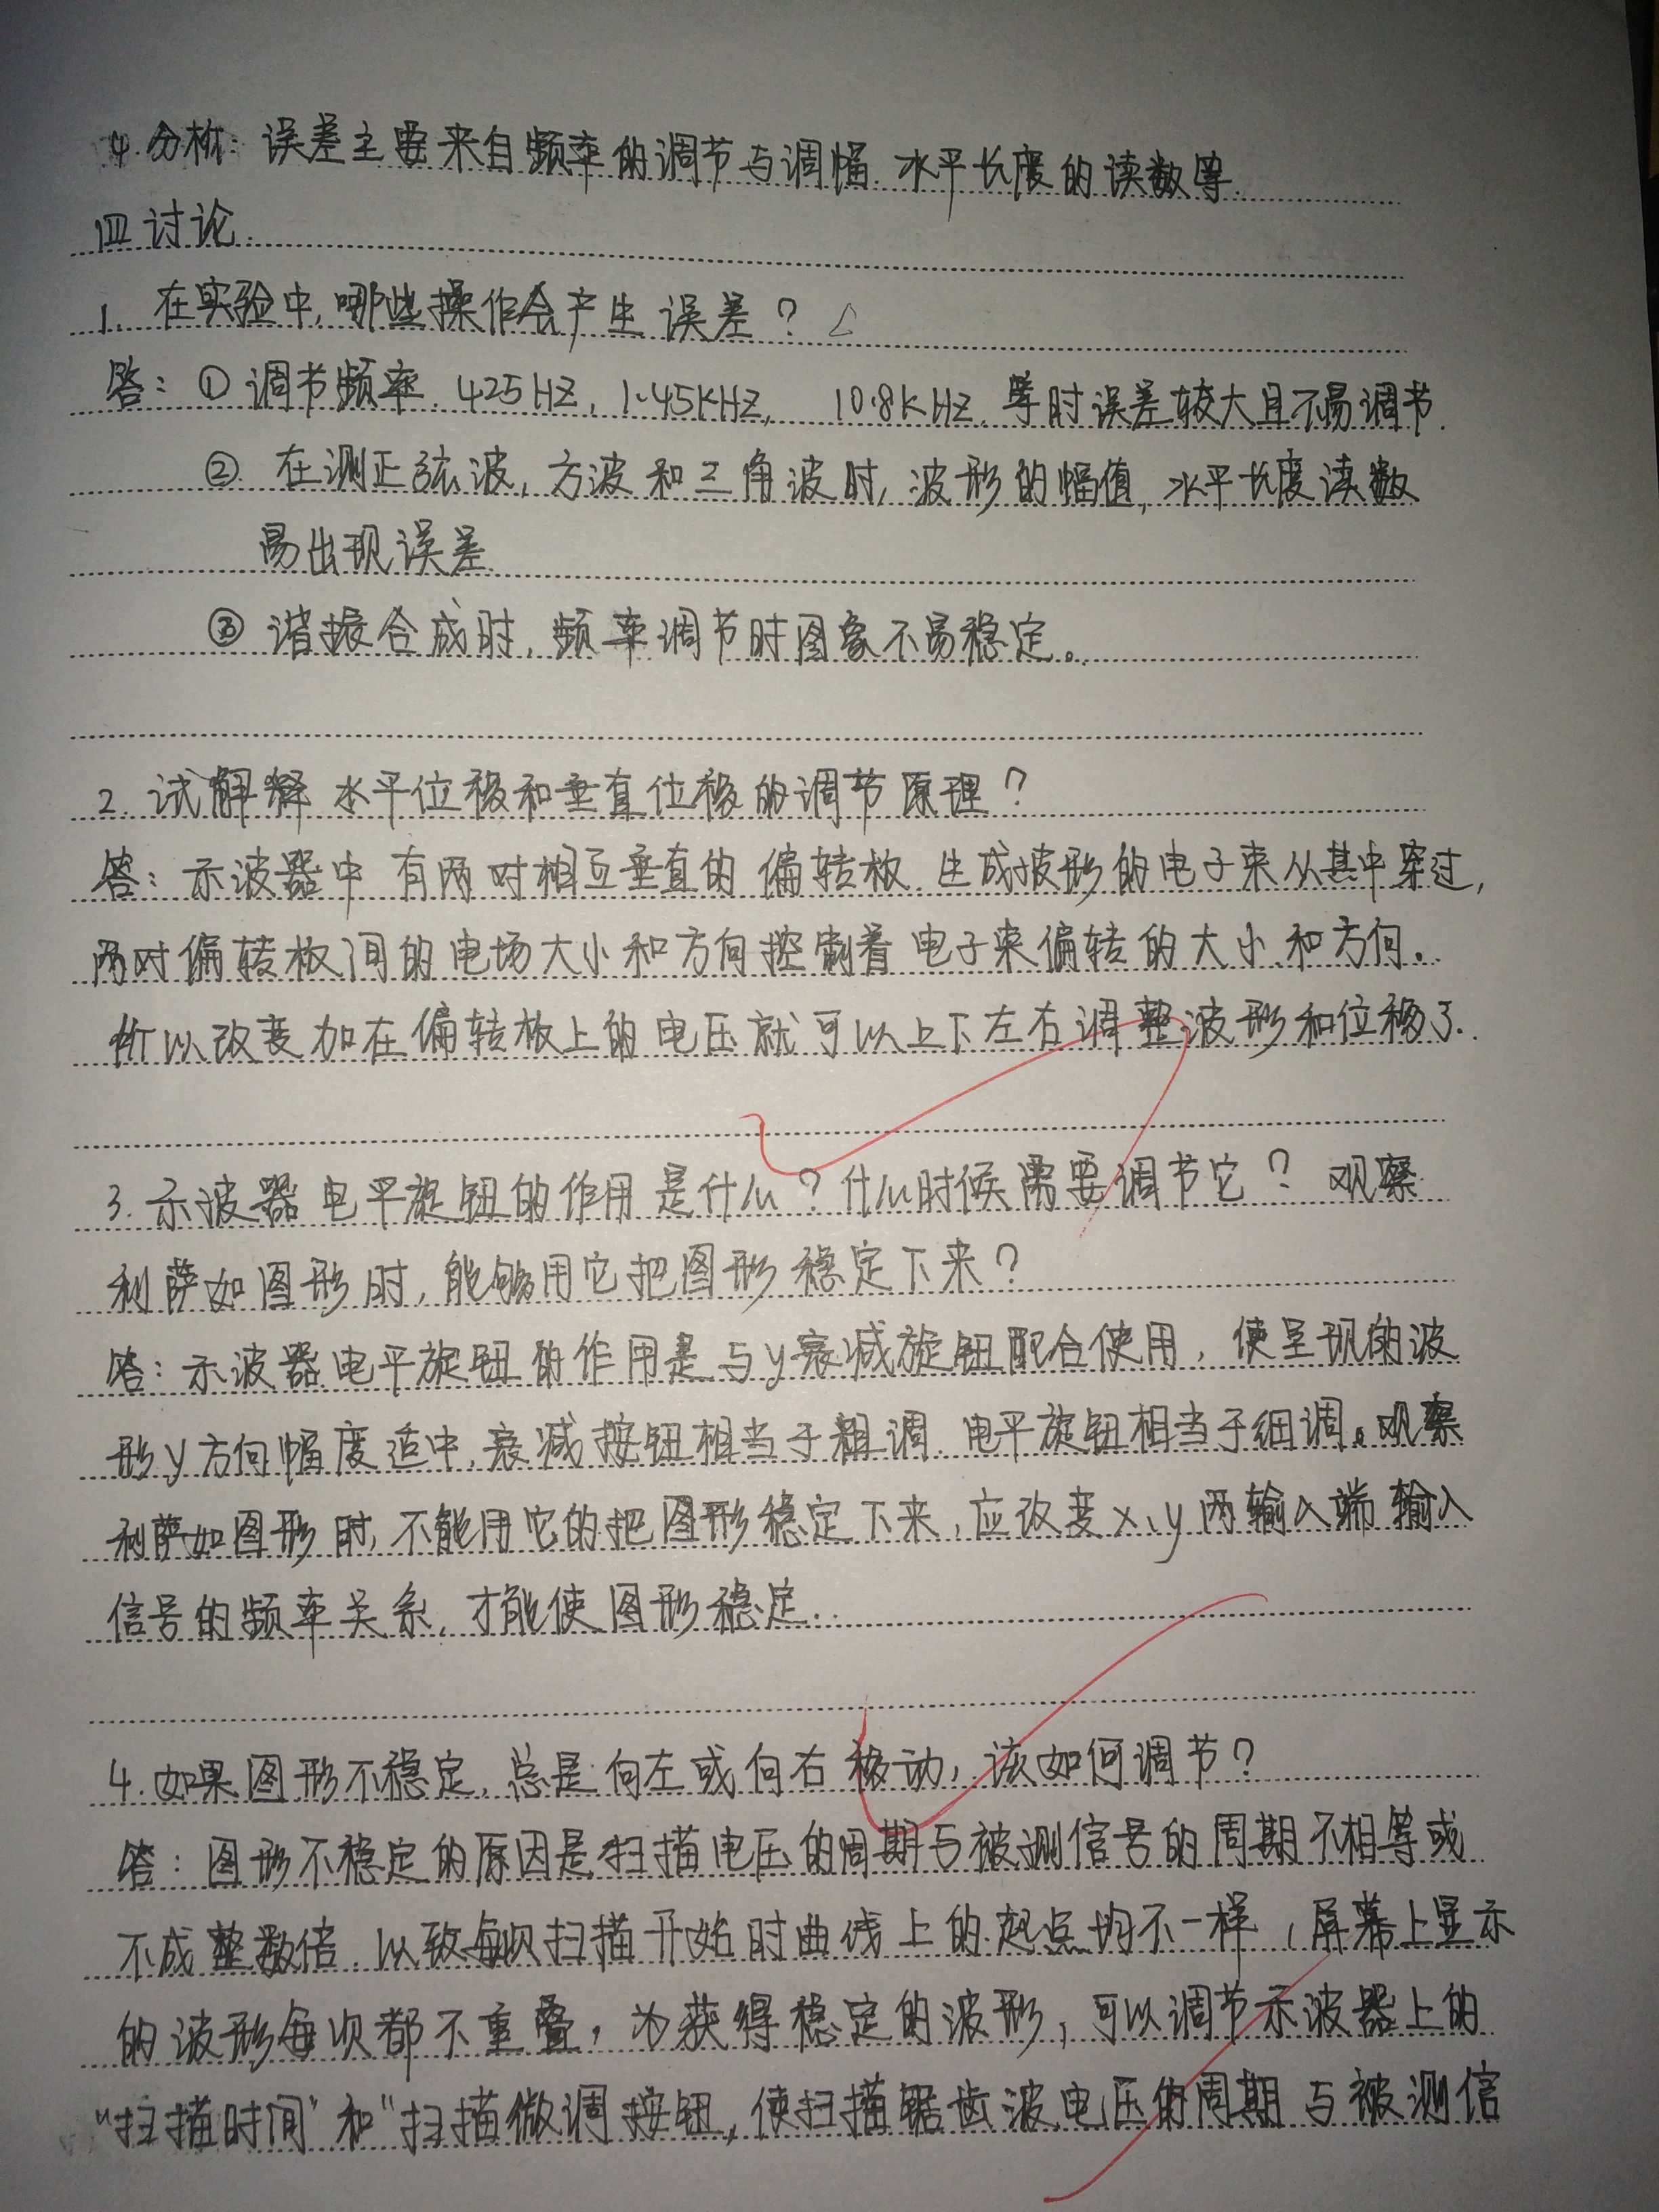 4.分析:误差主要来自频率的调节与调幅.水平长度的读数等.
四讨论.
1.在实验中,哪些操作会产生误差?
答:①调节频率.425HZ,1.45KHZ,10.8KHZ.等时误差较大且不易调节.
②.在测正弦波,方波和三角波时,波形的幅值,水平长度读数
易出现误差.
③谐振合成时,频率调节时图象不易稳定。
2.试解释水平位移和垂直位移的调节原理?
答:示波器中有两对相互垂直的偏转板.生成波形的电子束从其中穿过,
两对偏转板间的电场大小和方向控制着电子束偏转的大小和方向.
所以改变加在偏转板上的电压就可以上下左右调整波形和位移了.
3.示波器电平旋钮的作用是什么?什么时候需要调节它?观察
利萨如图形时,能够用它把图形稳定下来?
答:示波器电平旋钮的作用是与y衰减旋钮配合使用,使呈现的波
形y方向幅度适中,衰减按钮相当于粗调.电平旋钮相当于细调。观察
利萨如图形时,不能用它的把图形稳定下来,应改变x、y两输入端输入
信号的频率关系,才能使图形稳定.
4.如果图形不稳定,总是向左或向右移动,该如何调节?
答:图形不稳定的原因是扫描电压的周期与被测信号的周期不相等或
不成整数倍.以致每次扫描开始时曲线上的起点均不一样,屏幕上显示
的波形每次都不重叠,为获得稳定的波形,可以调节示波器上的
"扫描时间"和"扫描微调按钮,使扫描锯齿波电压的周期与被测信